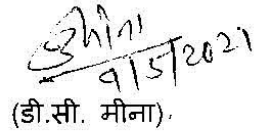 मीना
9/5/2021
(डी.सी. मीना).